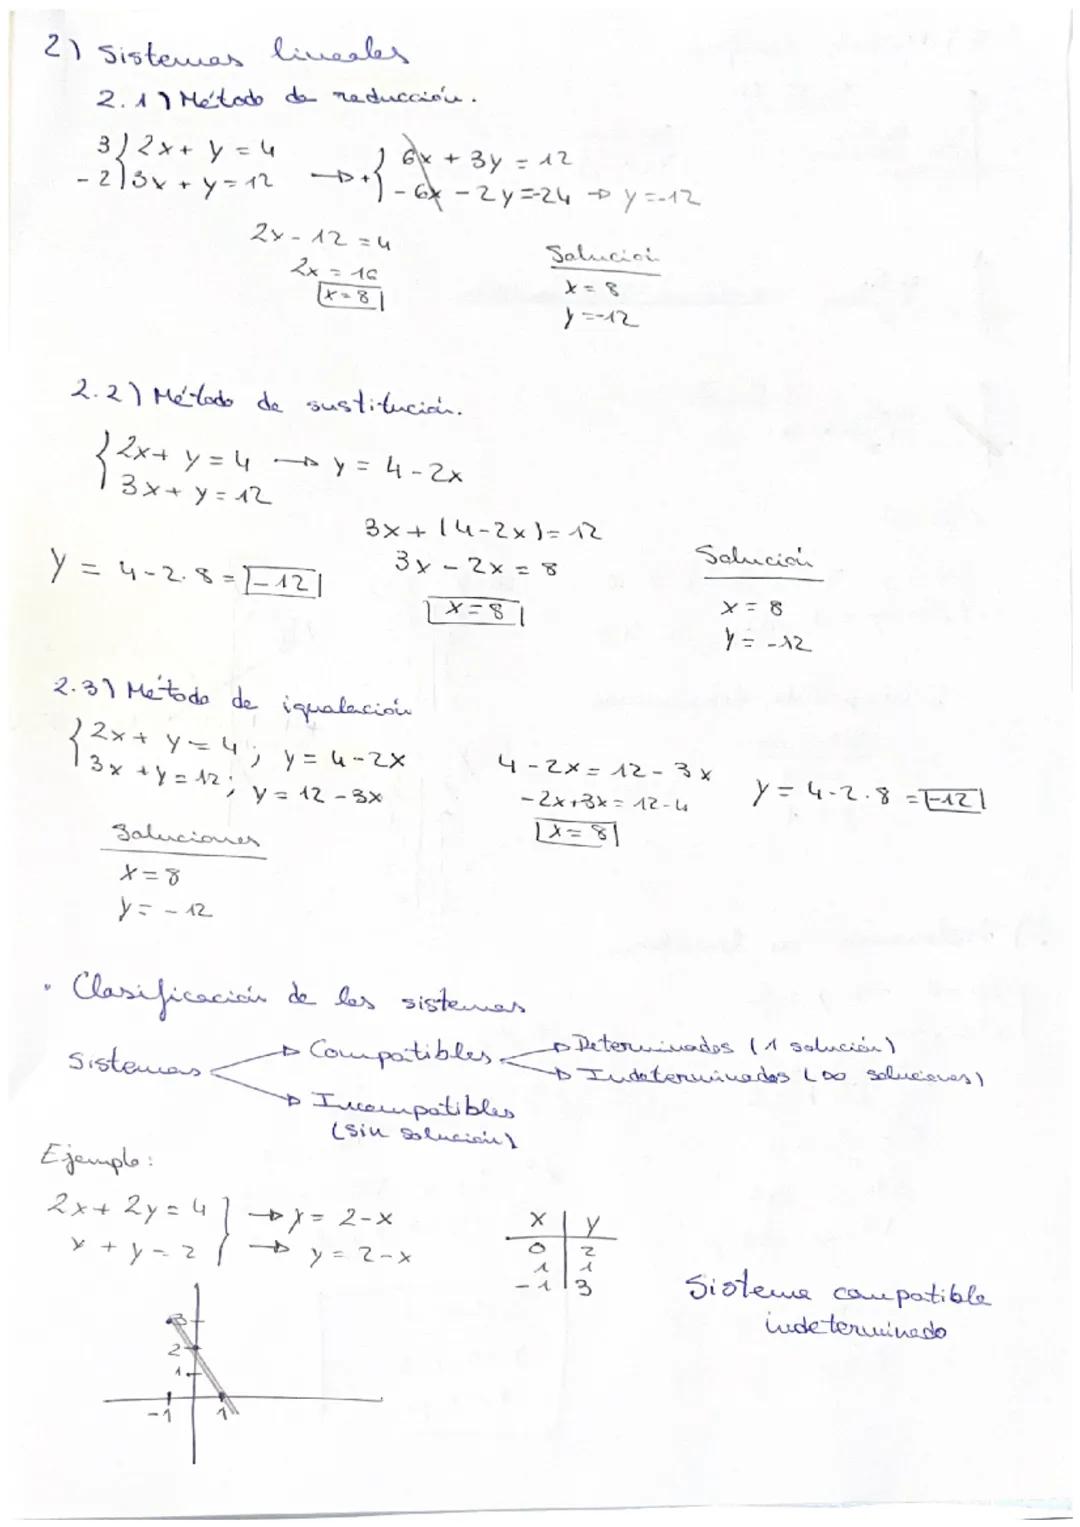 2) Sistemas lineales
2.1) Método de reducción.
3 { 2x + y = 4
-2 { 3x + y = 12 → + { 6x + 3y = 12
-6x - 2y = -24 → y = -12
2x - 12 = 4
2x = 16
x = 8
Solución
x = 8
y = -12
2.2) Método de sustitución.
{ 2x + y = 4 → y = 4 - 2x
3x + y = 12
3x + (4 - 2x) = 12
3x - 2x = 8
x = 8
y = 4 - 2 · 8 = -12
Solución
x = 8
y = -12
2.3) Método de igualación
{ 2x + y = 4 ; y = 4 - 2x
3x + y = 12 ; y = 12 - 3x
4 - 2x = 12 - 3x
-2x + 3x = 12 - 4
x = 8
y = 4 - 2 · 8 = -12
Soluciones
x = 8
y = -12
· Clasificación de los sistemas
Sistemas → Compatibles → Determinados (1 solución)
→ Indeterminados (∞ soluciones)
→ Incompatibles
(sin solución)
Ejemplo:
2x + 2y = 4 } → y = 2 - x
x + y = 2 } → y = 2 - x
x | y
0 | 2
1 | 1
-1 | 3
Sistema compatible
indeterminado
3
2
1
-1 1